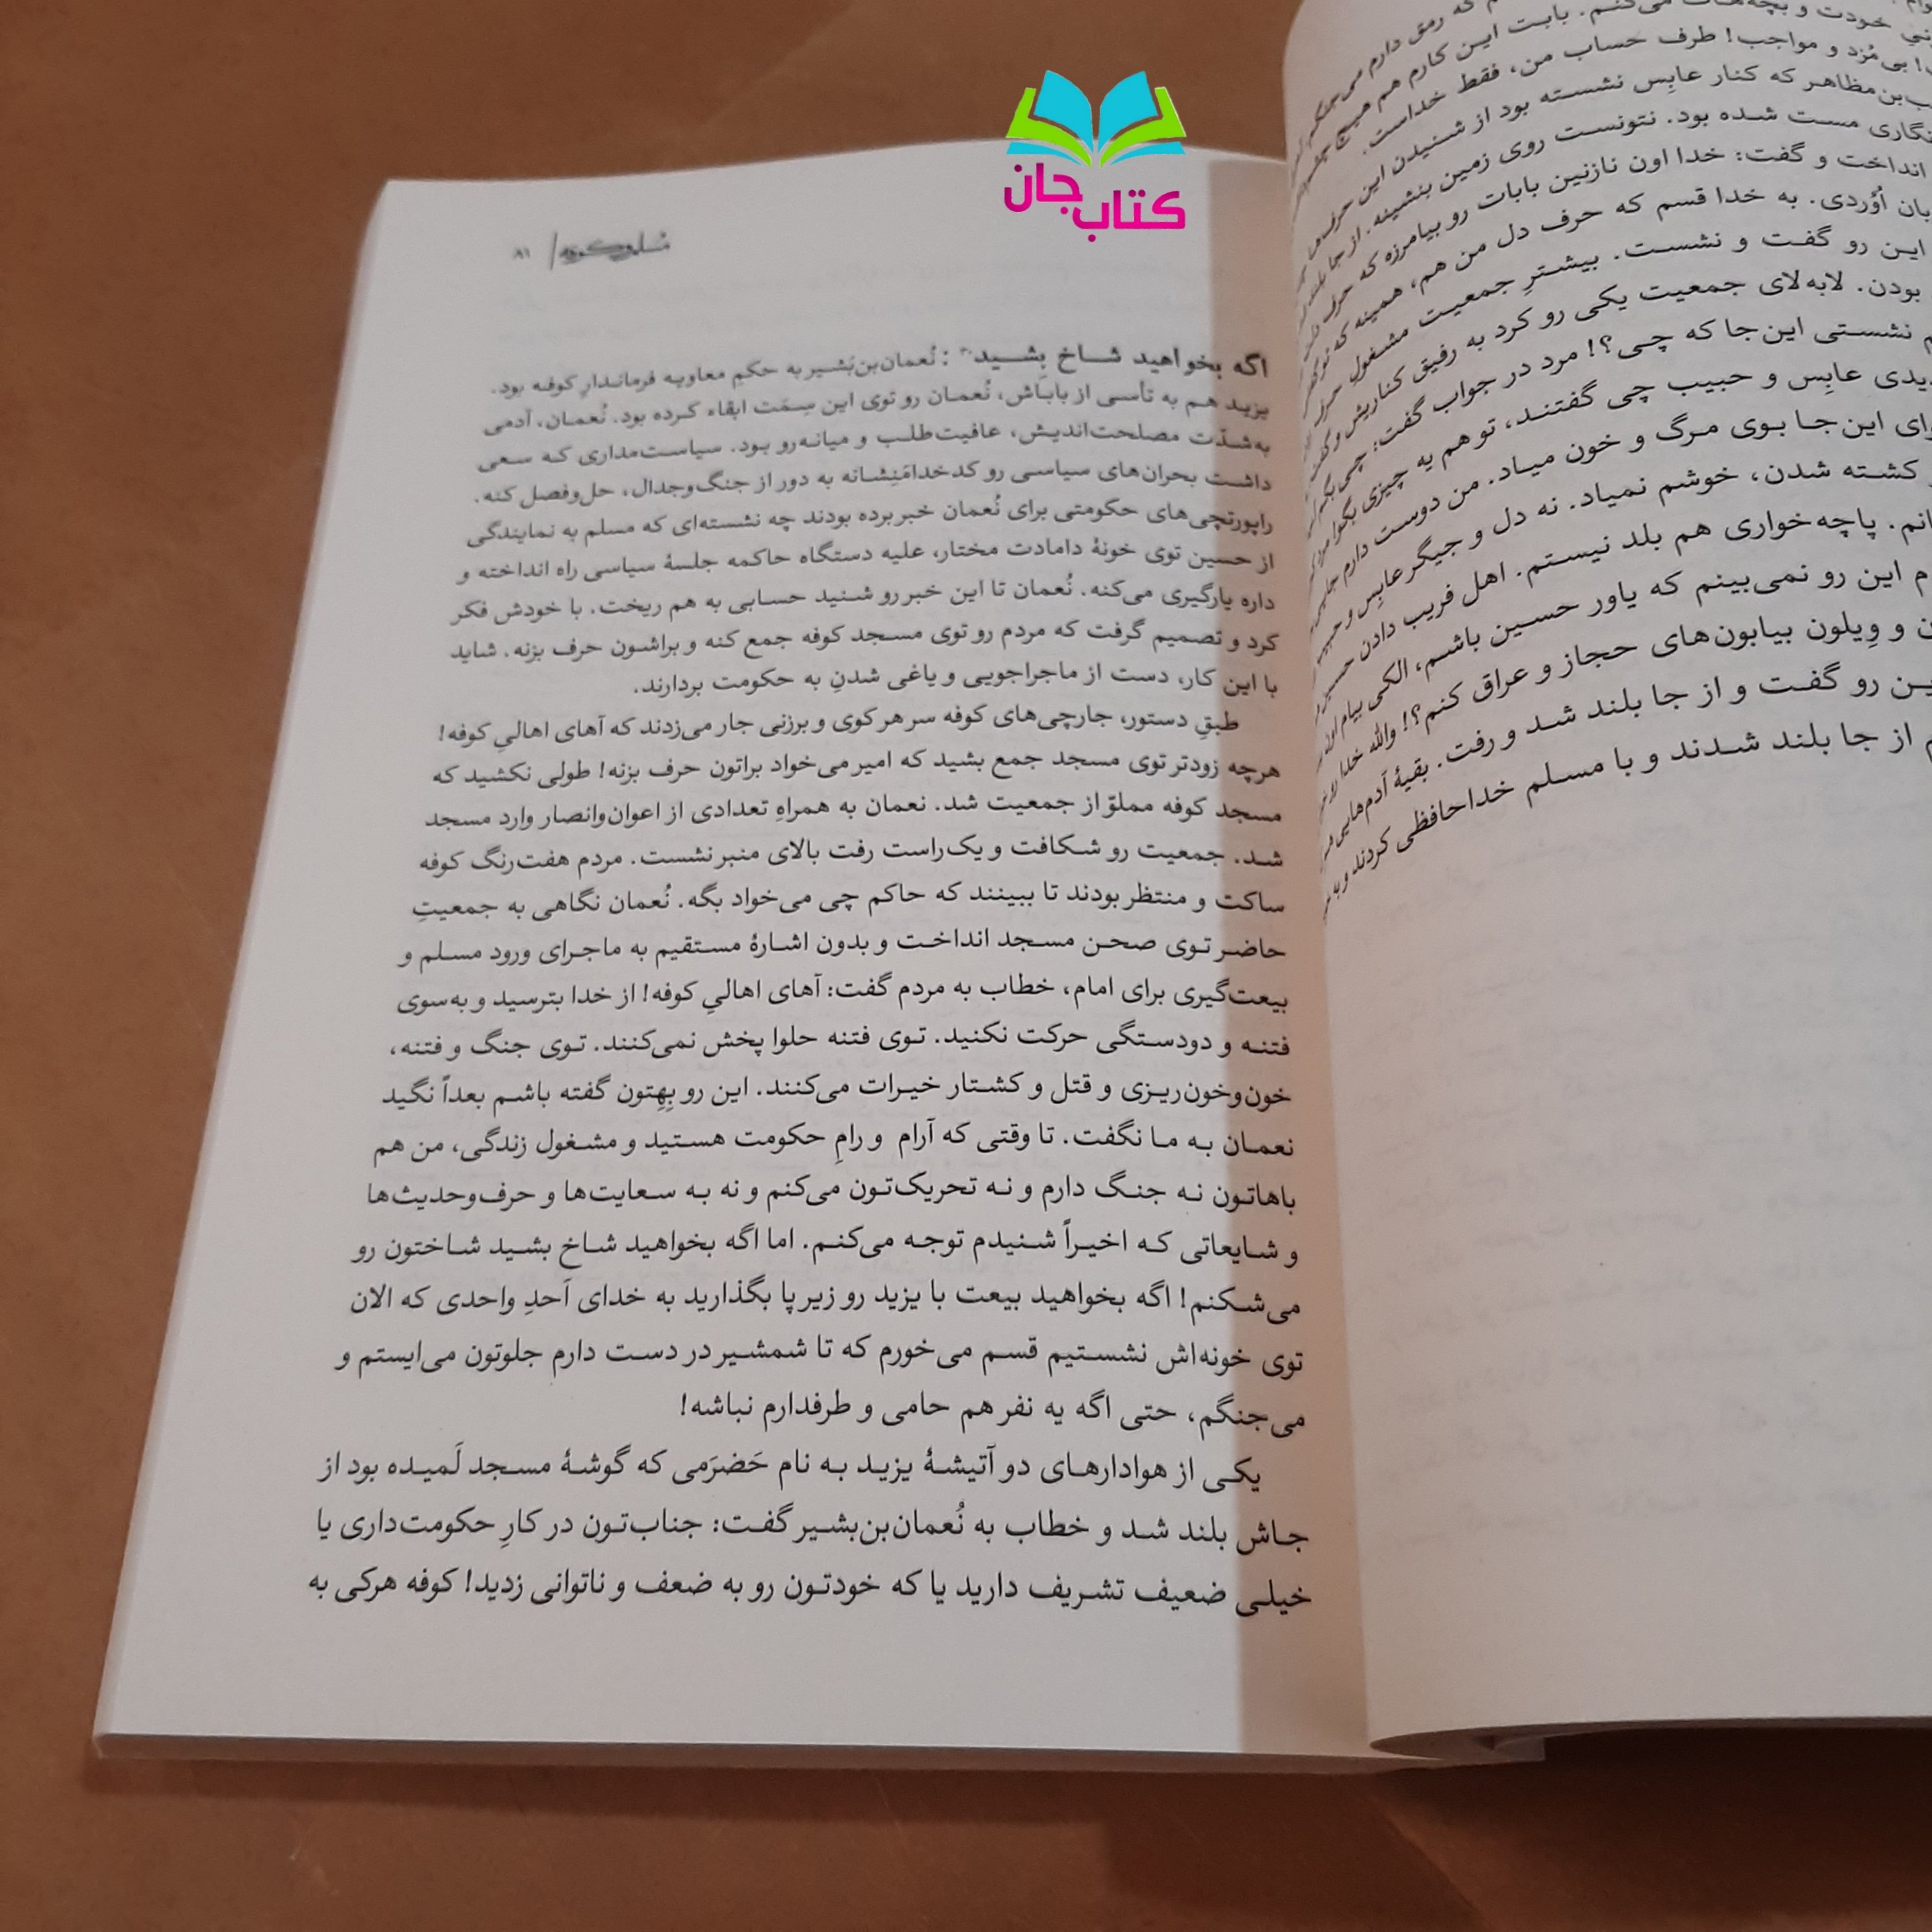 کتاب جان
۸۱
اگه بخواهید شاخ بِشید: نُعمان‌بن‌بَشیر به حکم معاویه فرماندارِ کوفه بود.
یزید هم به تأسی از باباش، نُعمان رو توی این سِمَت ابقاء کرده بود. نُعمان، آدمی
به‌شدّت مصلحت‌اندیش، عافیت‌طلب و میانه‌رو بود. سیاست‌مداری که سعی
داشت بحران‌های سیاسی رو کدخدامَنِشانه به دور از جنگ‌وجدال، حل‌وفصل کنه.
راپورتچی‌های حکومتی برای نُعمان خبر برده بودند چه نشسته‌ای که مسلم به نمایندگی
از حسین توی خونهٔ دامادت مختار، علیه دستگاه حاکمه جلسهٔ سیاسی راه انداخته و
داره یارگیری می‌کنه. نُعمان تا این خبر رو شنید حسابی به هم ریخت. با خودش فکر
کرد و تصمیم گرفت که مردم رو توی مسجد کوفه جمع کنه و براشون حرف بزنه. شاید
با این کار، دست از ماجراجویی و یاغی شدنِ به حکومت بردارند.
طبقِ دستور، جارچی‌های کوفه سر هر کوی و برزنی جار می‌زدند که آهای اهالیِ کوفه!
هرچه زودتر توی مسجد جمع بشید که امیر می‌خواد براتون حرف بزنه! طولی نکشید که
مسجد کوفه مملوّ از جمعیت شد. نعمان به همراهِ تعدادی از اعوان‌وانصار وارد مسجد
شد. جمعیت رو شکافت و یک‌راست رفت بالای منبر نشست. مردم هفت‌رنگ کوفه
ساکت و منتظر بودند تا ببینند که حاکم چی می‌خواد بگه. نُعمان نگاهی به جمعیتِ
حاضر توی صحن مسجد انداخت و بدون اشارهٔ مستقیم به ماجرای ورود مسلم و
بیعت‌گیری برای امام، خطاب به مردم گفت: آهای اهالیِ کوفه! از خدا بترسید و به‌سوی
فتنه و دودستگی حرکت نکنید. توی فتنه حلوا پخش نمی‌کنند. توی جنگ و فتنه،
خون‌وخون‌ریزی و قتل و کشتار خیرات می‌کنند. این رو بِهِتون گفته باشم بعداً نگید
نعمان به ما نگفت. تا وقتی که آرام و رامِ حکومت هستید و مشغول زندگی، من هم
باهاتون نه جنگ دارم و نه تحریک‌تون می‌کنم و نه به سعایت‌ها و حرف‌وحدیث‌ها
و شایعاتی که اخیراً شنیدم توجه می‌کنم. اما اگه بخواهید شاخ بشید شاختون رو
می‌شکنم! اگه بخواهید بیعت با یزید رو زیر پا بگذارید به خدای اَحدِ واحدی که الان
توی خونه‌اش نشستیم قسم می‌خورم که تا شمشیر در دست دارم جلوتون می‌ایستم و
می‌جنگم، حتی اگه یه نفر هم حامی و طرفدارم نباشه!
یکی از هوادارهای دو آتیشهٔ یزید به نام حَضرَمی که گوشهٔ مسجد لَمیده بود از
جاش بلند شد و خطاب به نُعمان‌بن‌بشیر گفت: جناب‌تون در کارِ حکومت‌داری یا
خیلی ضعیف تشریف دارید یا که خودتون رو به ضعف و ناتوانی زدید! کوفه هرکی به
که رمق دارم می‌جنگم
خودت و بچه‌هات می‌کنم. بابت این کارم هم هیچ
بی‌مُزد و مواجب! طرف حساب من، فقط خداست.
مظاهر که کنار عابِس نشسته بود از شنیدن این حرف‌ها
مست شده بود. نتونست روی زمین بنشینه. از جا بلند
انداخت و گفت: خدا اون نازنین بابات رو بیامرزه که حرف
اُوُردی. به خدا قسم که حرف دل من هم، همینه که تو گفتی
این رو گفت و نشست. بیشترِ جمعیت مشغولِ حرف
بودن. لابه‌لای جمعیت یکی رو کرد به رفیق کناریش و گفت
نشستی این‌جا که چی؟! مرد در جواب گفت: چی بگم
عابِس و حبیب چی گفتند، تو هم یه چیزی بگو!
این‌جا بوی مرگ و خون میاد. من دوست دارم
کشته شدن، خوشم نمیاد. نه دل و جیگر عابِس و حبیب
پاچه‌خواری هم بلد نیستم. اهل فریب دادن حسین
این رو نمی‌بینم که یاور حسین باشم، الکی بیام
و وِیلون بیابون‌های حجاز و عراق کنم؟! والله خدا
رو گفت و از جا بلند شد و رفت. بقیهٔ آدم‌هایی
از جا بلند شدند و با مسلم خداحافظی کردند و به